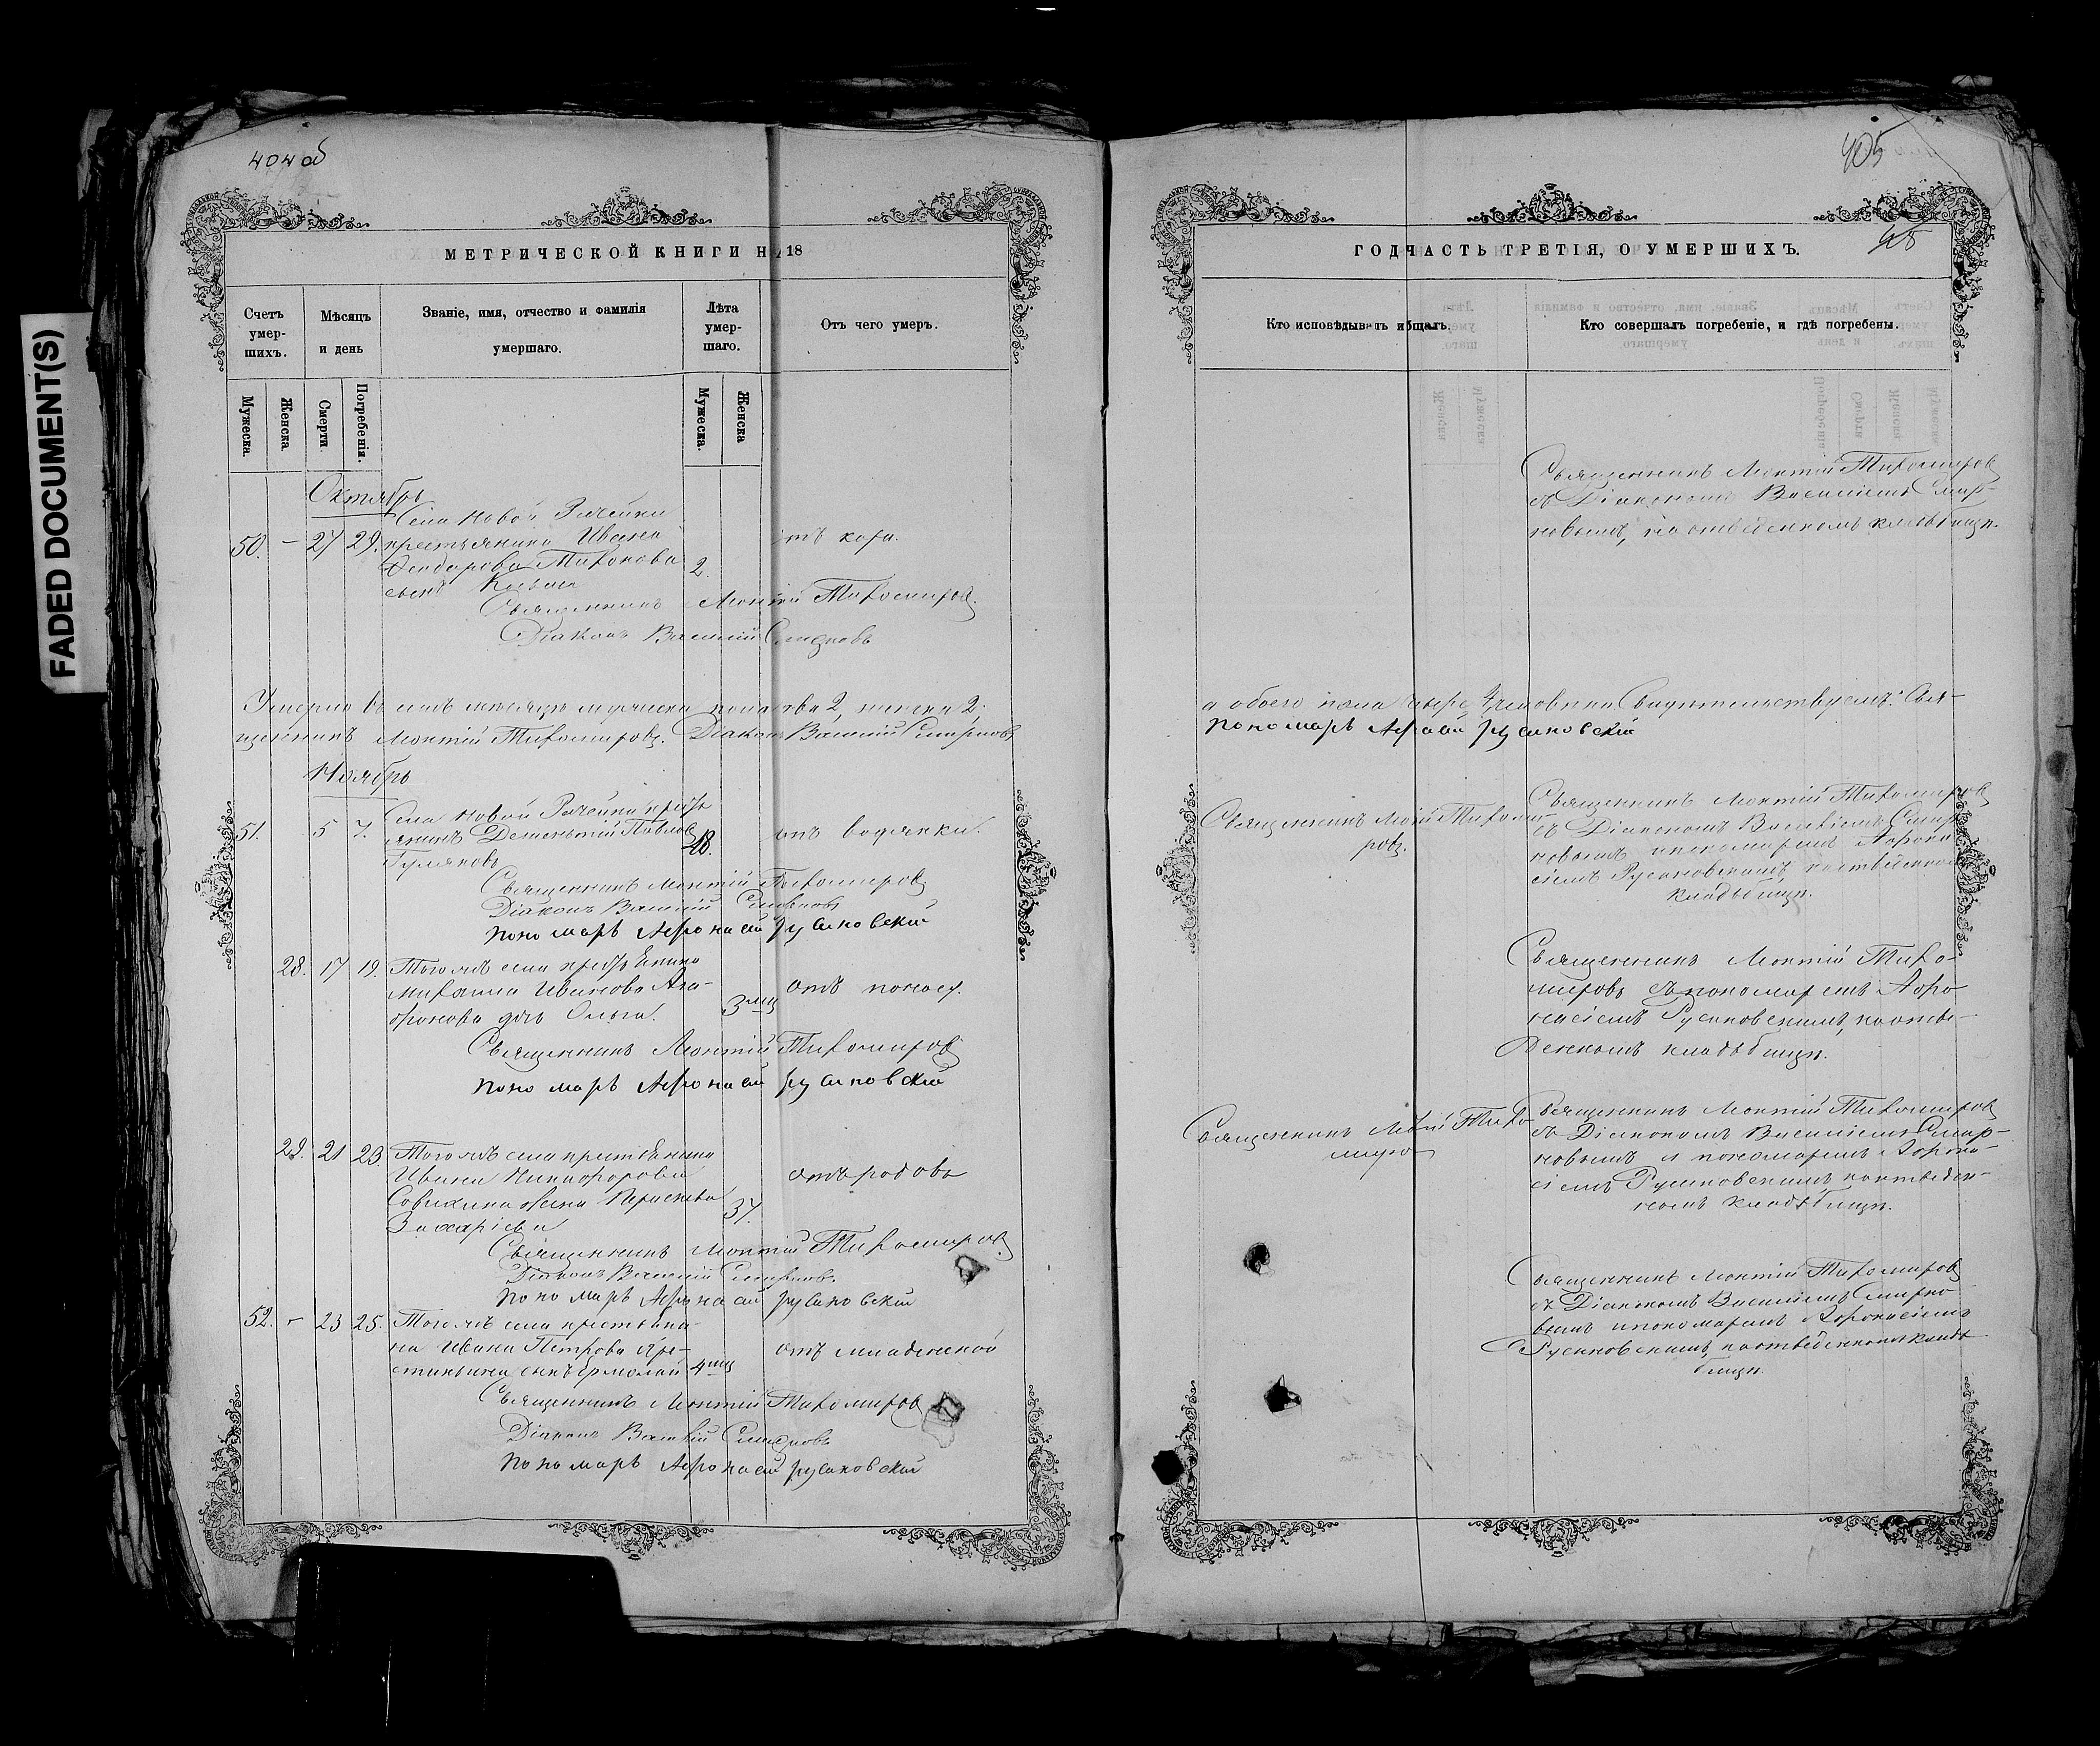 FADED DOCUMENT(S)
404 об
МЕТРИЧЕСКОЙ КНИГИ НА 18
Счетъ умер-шихъ.
Мѣсяцъ и день
Званіе, имя, отчество и фамилія умершаго.
Лѣта умер-шаго.
Отъ чего умеръ.
Мужеска.
Женска.
Смерти
Погребенія.
Мужеска.
Женска
Октябрь
Села Новой
50. – 27 29. крестьянина Ивана 2. отъ кори.
Феодорова Тихонова
сынъ
Священникъ Леонтій Тихомировъ.
Діаконъ Василій Смирновъ
Умерло въ семъ месяцѣ мужеска пола два 2, женска 2.
щенникъ Леонтій Тихомировъ. Діаконъ Василій Смирновъ
Ноябрь
Села Новой кресть
51. 5 7. янинъ Дементій Павловъ отъ водянки.
Гуляковъ
Священникъ Леонтій Тихомировъ
Діаконъ Василій Смирновъ
Пономарь Афонасій Русановскій
28. 17 19. Тогожъ села
Ивановa Ага-
фонова дочь Ольга. 3 мц отъ поносу.
Священникъ Леонтій Тихомировъ
Пономарь Афонасій Русановскій
29. 21 23 Тогожъ села крестьянина
Ивана Никифорова отъ родовъ
жена 37.
Захаріева
Священникъ Леонтій Тихомировъ
Діаконъ Василій Смирновъ.
Пономарь Афонасій Русановскій
52. – 23 25. Тогожъ села крестьяни-
на Ивана Петрова отъ младенской
сынъ Ермолай 4 мц
Священникъ Леонтій Тихомировъ
Діаконъ Василій Смирновъ
Пономарь Афонасій Русановскій
405
ГОДЪ ЧАСТЬ ТРЕТІЯ, О УМЕРШИХЪ.
Кто исповѣдывалъ и общалъ.
Кто совершалъ погребеніе, и гдѣ погребены.
Священникъ Леонтій Тихомировъ
съ Діакономъ Василіемъ Смир-
новымъ, на отведенномъ кладбищѣ.
а обоего пола 4 человека Свидѣтельствуемъ: Свя-
Пономарь Афонасій Русановскій
Священникъ Тихоми-
ровъ.
Священникъ Леонтій Тихомировъ
съ Діакономъ Василіемъ Смир
новымъ и пономаремъ Афона
сіемъ Русановскимъ, на отведенномъ
кладбищѣ.
Священникъ Леонтій Тихо-
мировъ съ пономаремъ Афо
насіемъ Русановскимъ, на отве-
денномъ кладбищѣ.
Священникъ Тихо
миро
Священникъ Леонтій Тихомировъ
съ Діакономъ Василіемъ Смир-
новымъ и пономаремъ Афона-
сіемъ Русановскимъ на отведен-
номъ кладбищѣ.
Священникъ Леонтій Тихомировъ
съ Діакономъ Василіемъ Смирно
вымъ и пономаремъ Афонасіемъ
Русановскимъ, на отведенномъ клад
бищѣ.